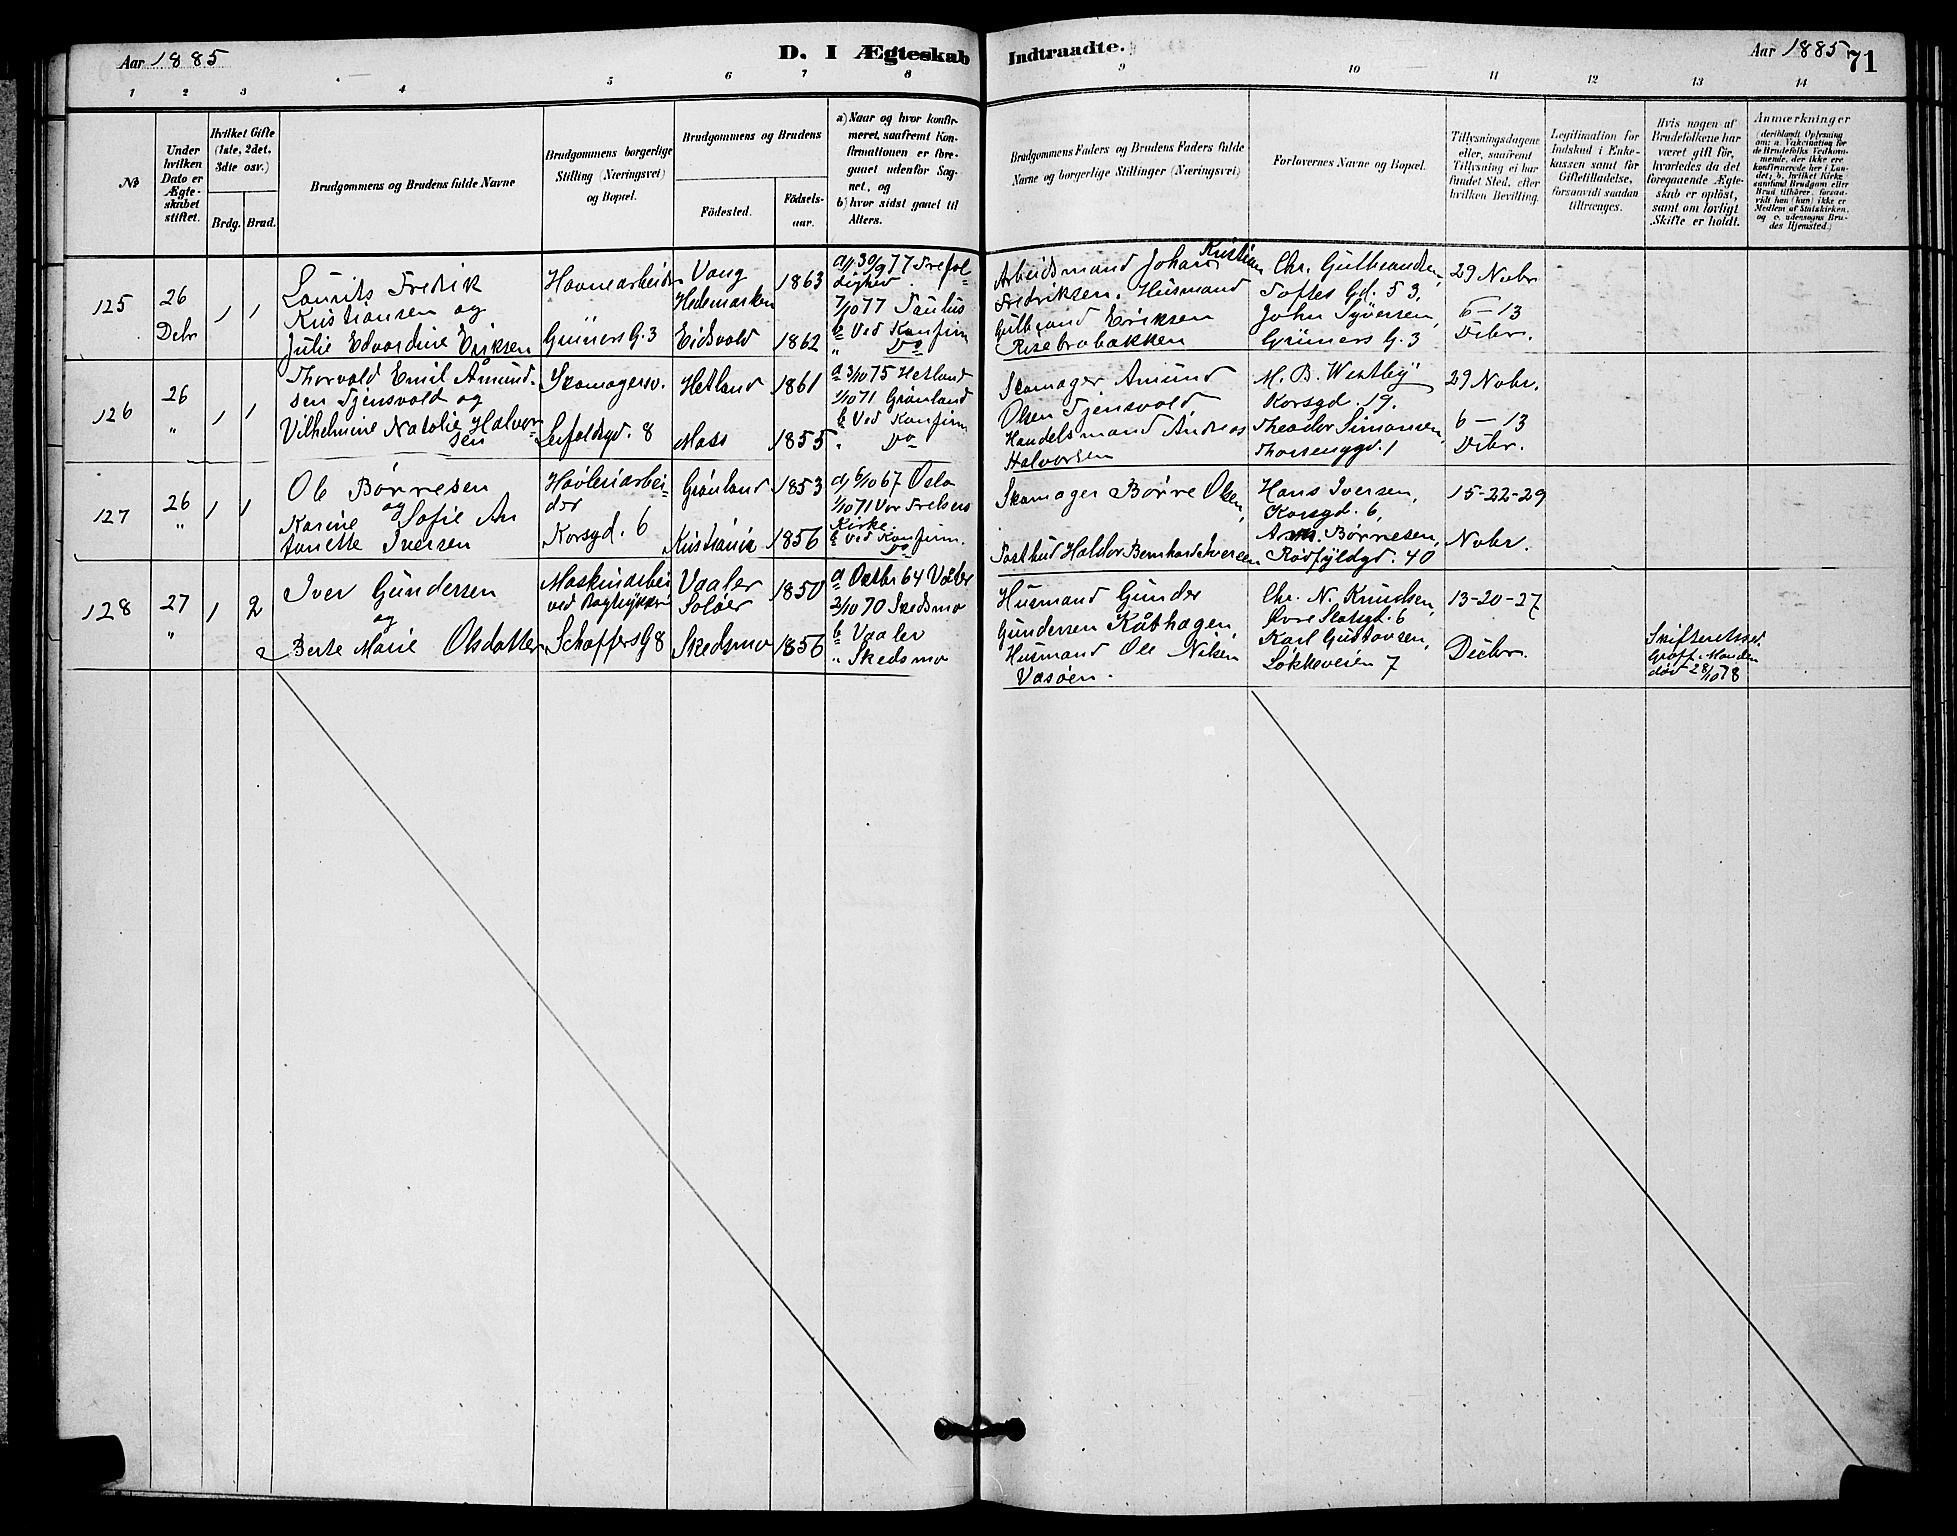 Aar 1885
D. I Ægteskab
Indtraadte.
Aar 1885
71
1 2 3 4 5 6 7 8 9 10 11 12 13 14
No
Under hvilken Dato er Ægteskabet stiftet.
Hvilket Gifte (1ste, 2det, 3die osv.)
Brdg. Brud.
Brudgommens og Brudens fulde Navne
Brudgommens borgerlige Stilling (Næringsvei) og Bopæl.
Brudgommens og Brudens
Fødested.
Fødselsaar.
a) Naar og hvor konfirmeret, saafremt Konfirmationen er foregaaet udenfor Sognet, og
b) hvor sidst gaaet til Alters.
Brudgommens Faders og Brudens Faders fulde Navne og borgerlige Stillinger (Næringsvei)
Forlovernes Navne og Bopæl.
Tillysningsdagene eller, saafremt Tillysning ei har fundet Sted, efter hvilken Bevilling.
Legitimation for Indskud i Enkekassen samt for Giftetilladelse, forsaavidt saadan tiltrænges.
Hvis nogen af Brudefolkene har været gift før, hvorledes da det foregaaende Ægteskab er opløst, samt om lovligt Skifte er holdt.
Anmærkninger (deriblandt Oplysning om: a. Vakcination for de Brudefolks Vedkommende, der ikke ere konfirmerede her i Landet; b. hvilket Kirkesamfund Brudgom eller Brud tilhører, forsaavidt han (hun) ikke er Medlem af Statskirken, og c. udensogns Brudes Hjemsted.)
125
26 Debr
1 1
Laurits Fredrik
Kristiansen og
Julie Edvardine Eriksen
Havnearbeider
Grüners G. 3
Vang
Hedemarken
Eidsvold
1863
1862
a) 30/9 77 Trefoldighed.
7/10 77 Paulus
b Ved Konfirm
" Do
Arbeidsmand Johan Kristian
Fredriksen. Husmand
Gulbrand Eriksen
Risebrobakken
Chr. Gulbrandsen,
Toftes Gd. 53,
John Syversen,
Grüners G. 3
29 Nobr
6-13
Debr.
126
26
"
1 1
Thorvald Emil Amundsen Tjensvold og
Vilhelmine Natalie Halvorsen
Skomagersv.
Leifaldsgd. 8
Hetland
Moss
1861
1855
a 3/10 75 Hetland
1/10 71 Grønland
b Ved Konfirm
" Do
Skomager Amund
Olsen Tjensvold
Handelsmand Andreas
Halvorsen
M. B. Westby
Korsgd. 19.
Theodor Simonsen,
Thorsenggd. 1
29 Nobr.
6-13
Debr.
127
26
"
1 1
Ole Børresen
og
Karine Sofie Antonette Iversen
Høvleriarbeider
Korsgd. 6
Grønland
Kristiania
1853
1856
a) 6/10 67 Oslo
1/10 71 Vor Frelsers
Kirke.
b Ved Konfirm.
Do
Skomager Børre Olsen,
Postbud Haldor Bernhard Iversen
Hans Iversen,
Korsgd. 6,
Børresen,
Rødfyldgd. 40
15-22-29
Nobr.
128
27
"
1 2
Iver Gundersen
og
Berte Marie Olsdatter
Maskinarbei
ved Bogtrykkeri
Schaffers G 8
Vaaler
Soløer
Skedsmo
1850
1856
a Octbr 64 Våler
2/10 70 Skedsmo
b Vaaler
" Skedsmo
Husmand Gunder
Gundersen Kåthagen,
Husmand Ole Nilsen
Vasøen.
Chr. N. Knudsen,
Øvre Slotsgd. 6
Karl Gustavsen,
Løkkeveien 7
13-20-27
Decbr.
Skifteretsse
Manden
død 28/10 78